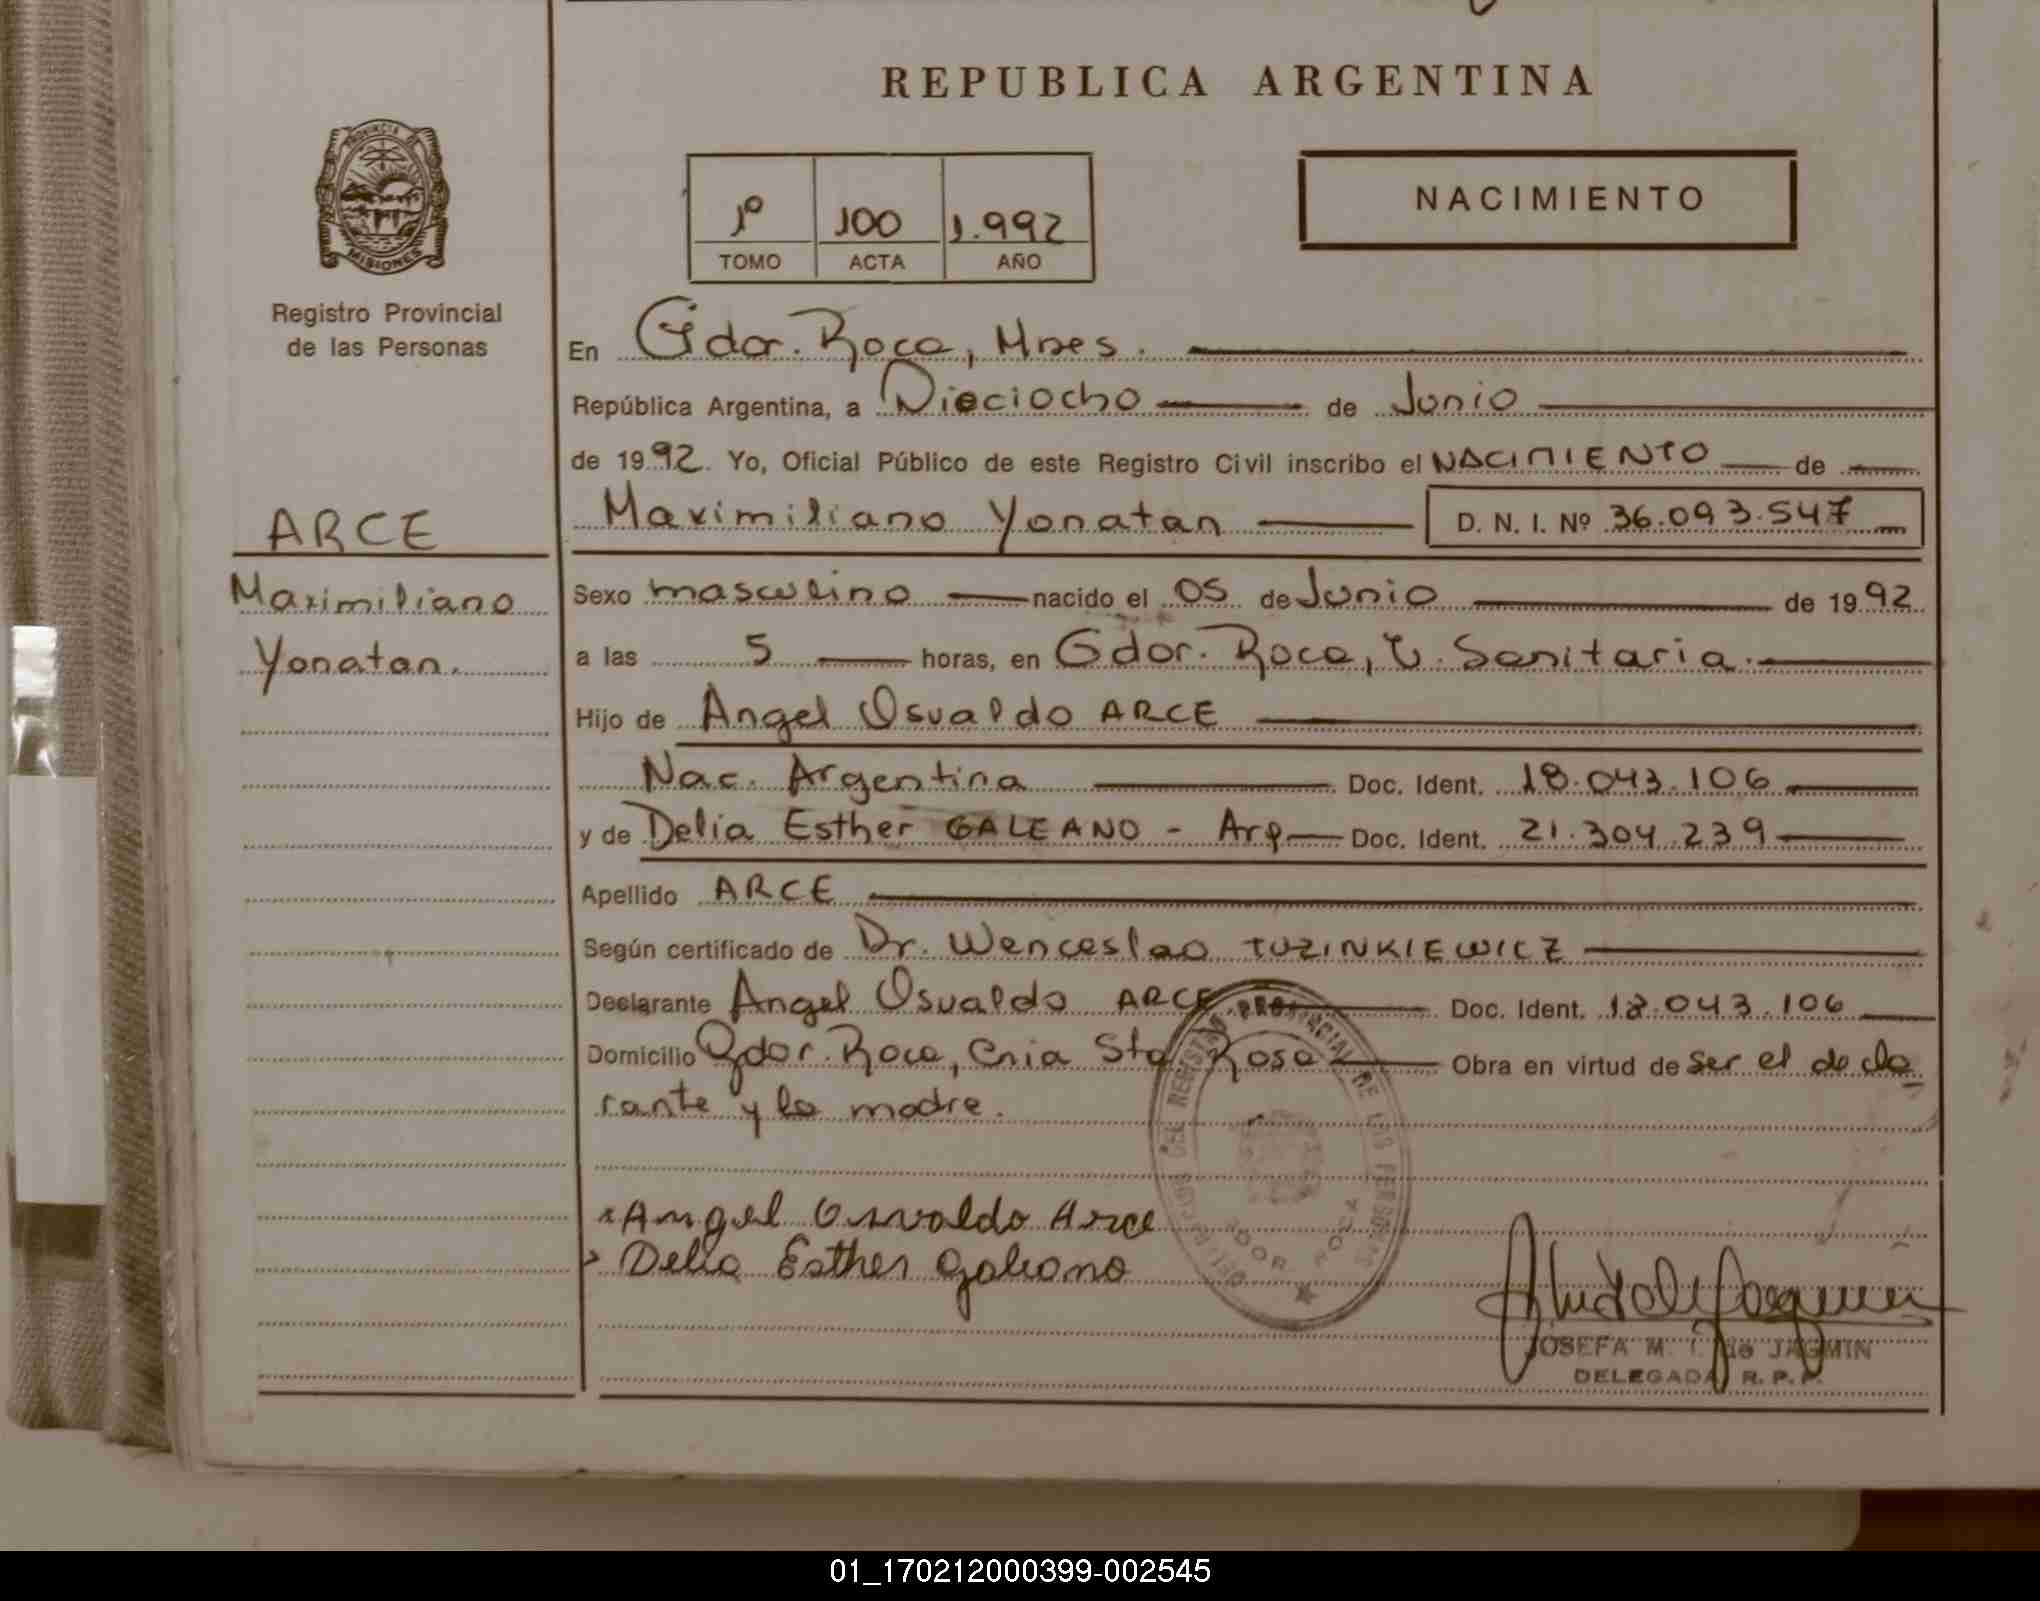 REPUBLICA ARGENTINA
PROVINCIA DE
MISIONES
Registro Provincial
de las Personas
1º 100 1.992
TOMO ACTA AÑO
NACIMIENTO
En Gdor. Roca, Mnes.
República Argentina, a Dieciocho de Junio
de 1992. Yo, Oficial Público de este Registro Civil inscribo el NACIMIENTO de
ARCE
Maximiliano Yonatan D. N. I. Nº 36.093.547
Maximiliano
Yonatan.
Sexo masculino nacido el 05 de Junio de 1992
a las 5 horas, en Gdor. Roca, U. Sanitaria.
Hijo de Angel Osvaldo ARCE
Nac. Argentina Doc. Ident. 18.043.106
y de Delia Esther GALEANO - Arg Doc. Ident. 21.304.239
Apellido ARCE
Según certificado de Dr. Wenceslao TUZINKIEWICZ
Declarante Angel Osvaldo ARCE Doc. Ident. 18.043.106
Domicilio Gdor. Roca, Cnia Sta Rosa Obra en virtud de ser el decla
rante y la madre.
DEL REGISTRO PROVINCIAL DE LAS PERSONAS
GDOR ROCA
Angel Osvaldo Arce
Delia Esther Galeano
JOSEFA M. I. de JAGMIN
DELEGADA R. P. P.
01_170212000399-002545